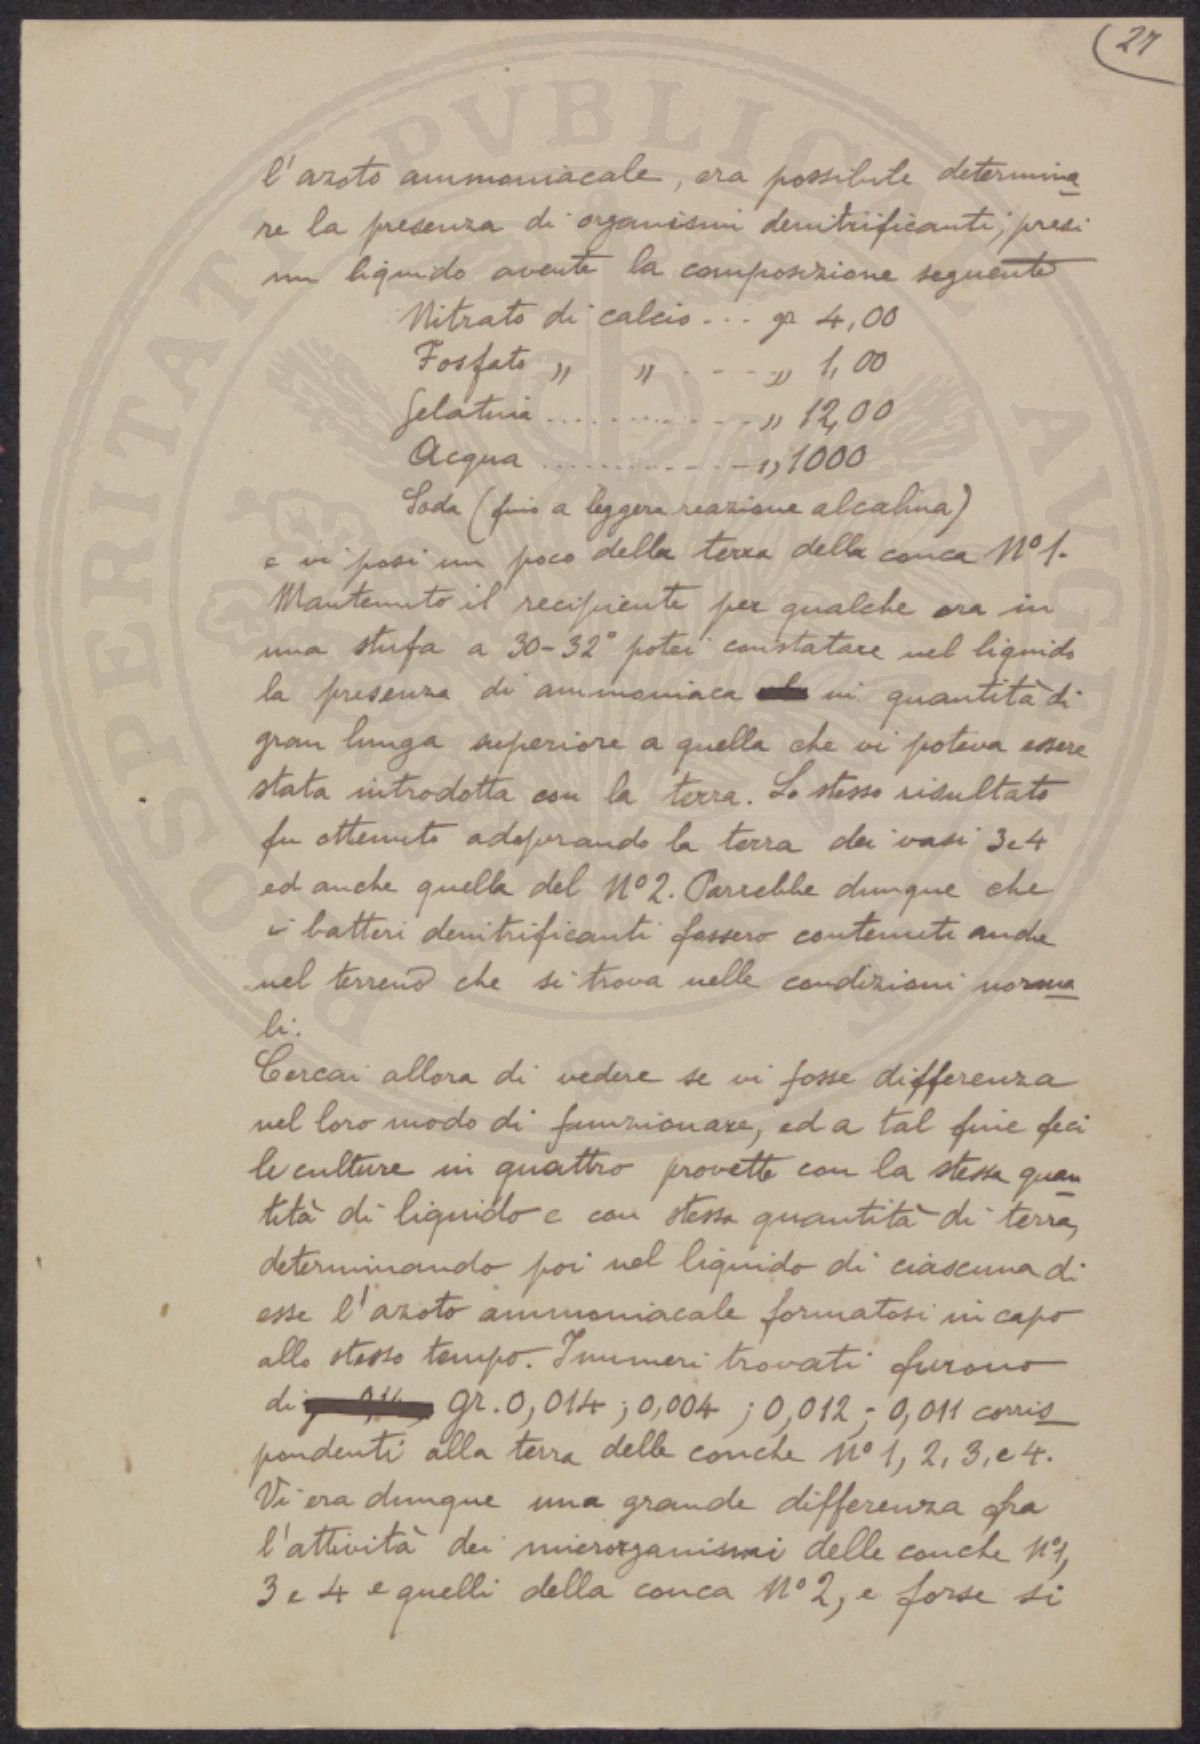 27
l'azoto ammoniacale, era possibile determina
re la presenza di organismi denitrificanti; presi
un liquido avente la composizione seguente
Nitrato di calcio... gr 4,00
Fosfato " " - - - - " 1,00
Gelatina ............ " 12,00
Acqua ............ " 1000
Soda (fino a leggera reazione alcalina)
e vi posi un poco della terra della conca Nº 1.
Mantenuto il recipiente per qualche ora in
una stufa a 30-32° potei constatare nel liquido
la presenza di ammoniaca in quantità di
gran lunga superiore a quella che vi poteva essere
stata introdotta con la terra. Lo stesso risultato
fu ottenuto adoperando la terra dei vasi 3 e 4
ed anche quella del Nº 2. Parrebbe dunque che
i batteri denitrificanti fossero contenuti anche
nel terreno che si trova nelle condizioni norma
li.
Cercai allora di vedere se vi fosse differenza
nel loro modo di funzionare, ed a tal fine feci
le culture in quattro provette con la stessa quan
tità di liquido e con stessa quantità di terra,
determinando poi nel liquido di ciascuna di
esse l'azoto ammoniacale formatosi in capo
allo stesso tempo. I numeri trovati furono
di gr. 0,014; 0,004; 0,012; 0,011 corris
pondenti alla terra delle conche Nº 1, 2, 3, e 4.
Vi era dunque una grande differenza fra
l'attività dei microrganismi delle conche Nº 1,
3 e 4 e quelli della conca Nº 2, e forse si
PROSPERITATI PVBLICAE AVGENDAE